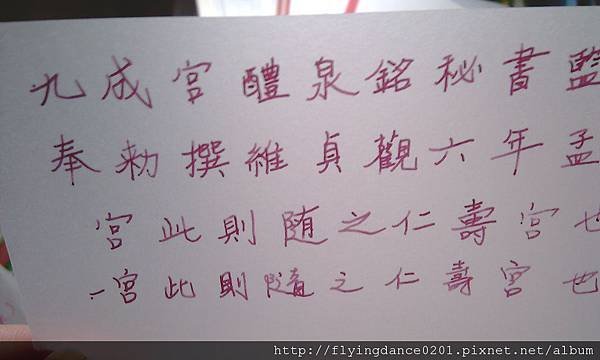 九成宮醴泉銘秘書監
奉勅撰維貞觀六年孟
宮此則隨之仁壽宮也
一宮此則隨之仁壽宮也
http://flyingdance0201.pixnet.net/album